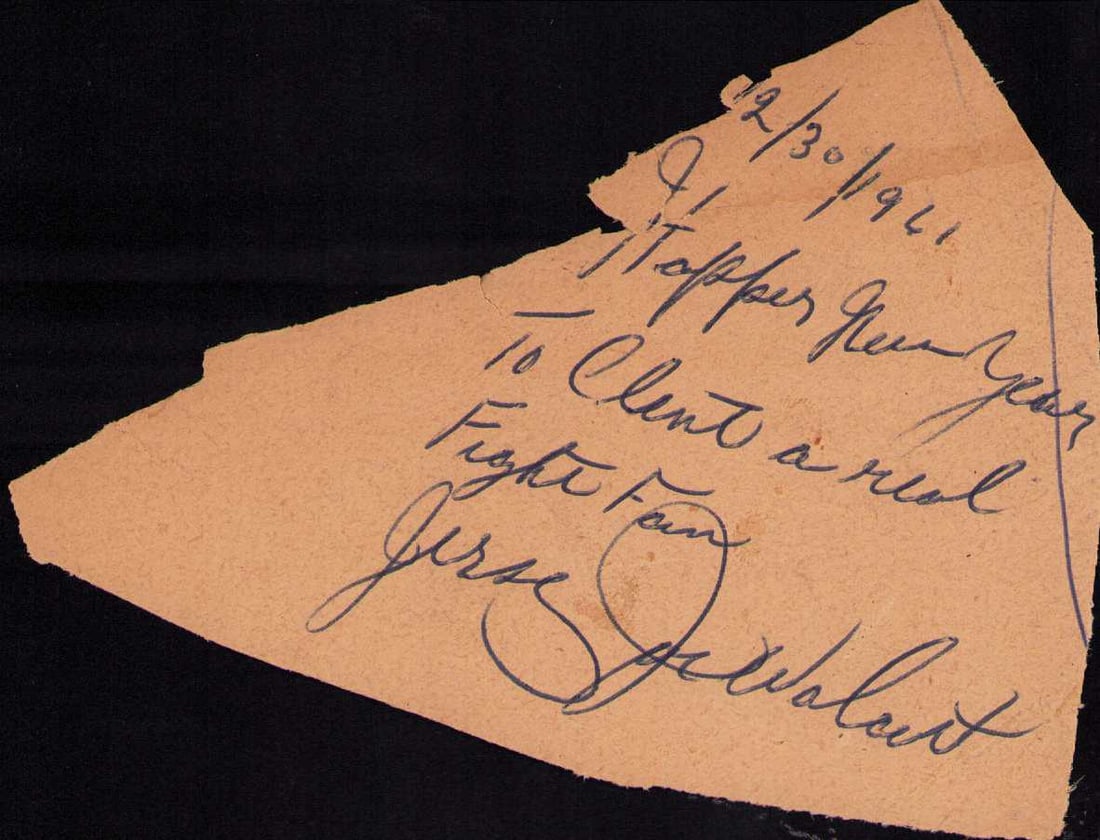 12/30/1961
Happy New Year
To Clent a real
Fight Fan
Jersey Joe Walcott